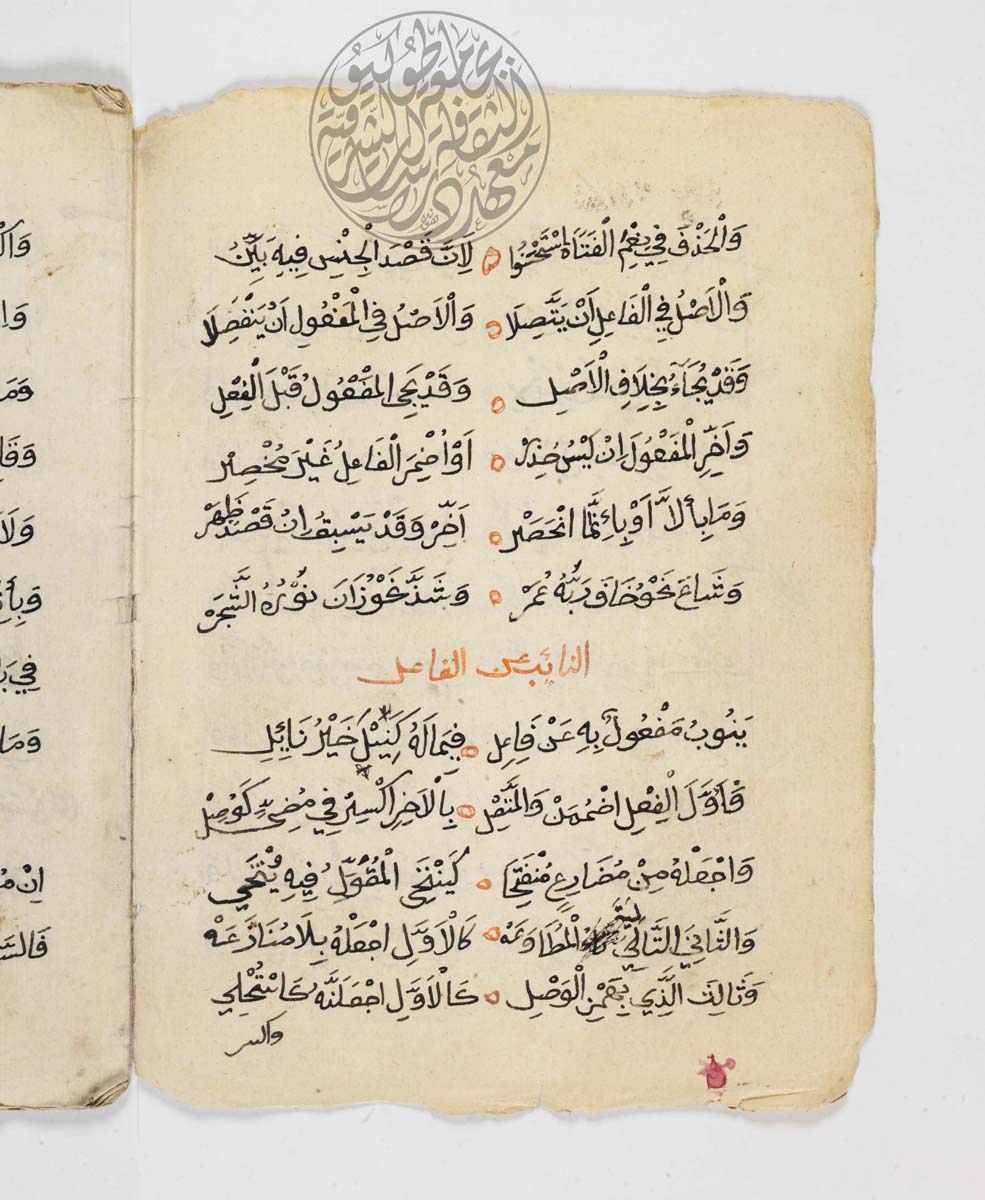 جامعة طوكيو
معهد دراسات الثقافة الشرقية
وَالْحَذْفَ فِي نِعْمَ الْفَتَاةُ اسْتَحْسَنُوا ۞ لِاَنَّ قَصْدَ الْجِنْسِ فِيهِ بَيِّنُ
وَالْاَصْلُ فِي الْفَاعِلِ اَنْ يَتَّصِلَا ۞ وَالْاَصْلُ فِي الْمَفْعُولِ اَنْ يَنْفَصِلَا
وَقَدْ يُجَآءُ بِخِلَافِ الْاَصْلِ ۞ وَقَدْ يَجِي الْمَفْعُولُ قَبْلَ الْفِعْلِ
وَاَخِّرِ الْمَفْعُولَ اِنْ لَبْسٌ حُذِرْ ۞ اَوْ اُضْمِرَ الْفَاعِلُ غَيْرَ مُنْحَصِرْ
وَمَا بِاِلَّا اَوْ بِاِنَّمَا انْحَصَرْ ۞ اَخِّرْ وَقَدْ يَسْبِقُ اِنْ قَصْدٌ ظَهَرْ
وَشَاعَ نَحْوُ خَافَ رَبَّهُ عُمَرْ ۞ وَشَذَّ نَحْوُ زَانَ نَوْرُهُ الشَّجَرْ
النائب عن الفاعل
يَنُوبُ مَفْعُولٌ بِهِ عَنْ فَاعِلِ ۞ فِيمَا لَهُ كَنِيْلَ خَيْرُ نَائِلِ
فَاَوَّلَ الْفِعْلِ اضْمُمَنْ وَالْمُتَّصِلْ ۞ بِالْاٰخِرِ اكْسِرْ فِي مُضِيٍّ كَوُصِلْ
وَاجْعَلْهُ مِنْ مُضَارِعٍ مُنْفَتِحَا ۞ كَيَنْتَحِي الْمَقُولِ فِيهِ يُنْتَحَى
وَالثَّانِيَ التَّالِيَ تا الْمُطَاوَعَهْ ۞ كَالْاَوَّلِ اجْعَلْهُ بِلَا مُنَازَعَهْ
وَثَالِثَ الَّذِي بِهَمْزِ الْوَصْلِ ۞ كَالْاَوَّلِ اجْعَلَنَّهُ كَاسْتُحْلِي
واكسر